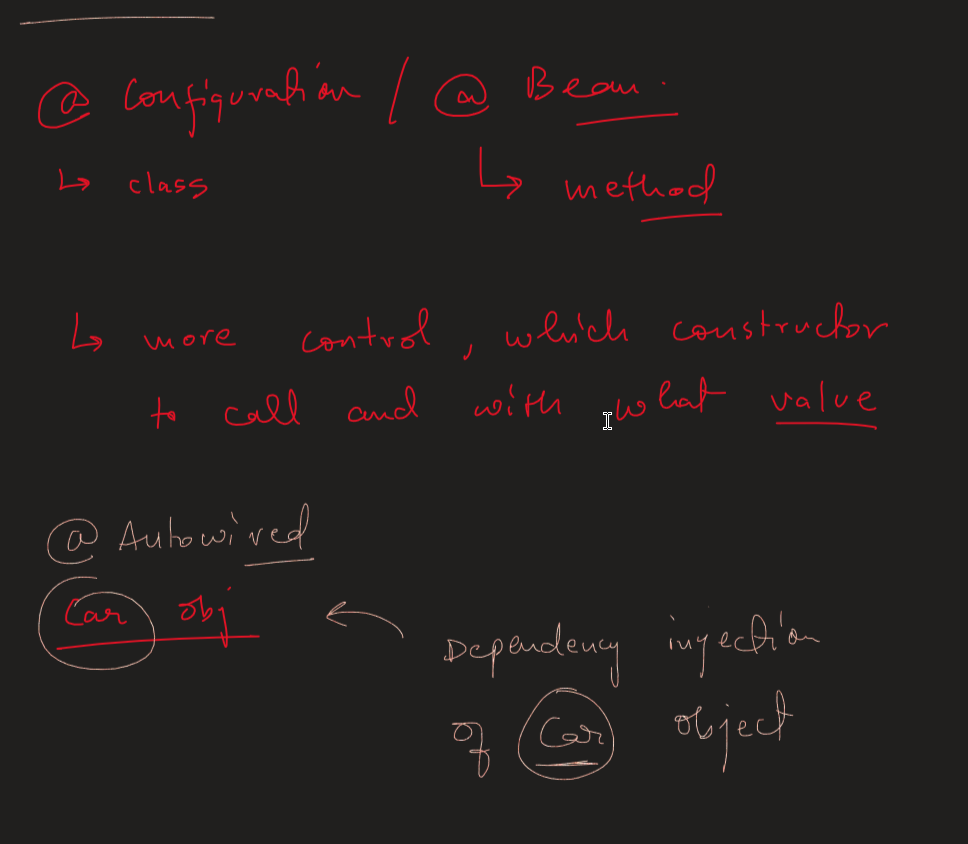 @ Configuration / @ Bean.
↳ class ↳ method
↳ more control, which constructor
to call and with what value
@ Autowired
Car obj
Dependency injection
of Car object